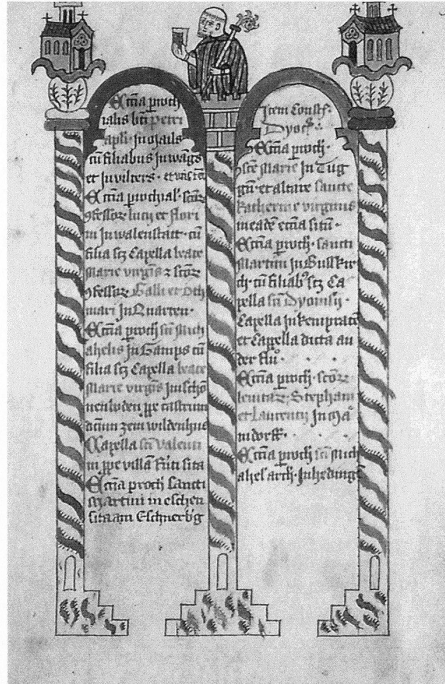 Ecc̄ia p̄roch
ialis bt̄i petri
apl̄i in
cū filiabus in wags
et in vilters
Ecc̄ia p̄rochial̄ sc̄oꝝ
ꝯfessoꝝ lucii et flori
ni in walenstatt cū
filia sc̄ꝫ Capella beate
Marie virgīs ꞇ sc̄oꝝ
ꝯfessoꝝ Galli et Oth
mari in Quarten
Ecc̄ia p̄roch sc̄i Mich
ahelis in Gamps cū
filia sc̄ꝫ Capella beate
Marie virgīs in schö
castrum
zem wildenhus
Capella sc̄i valenti
ni ꝓpe villā sita
Ecc̄ia p̄roch sancti
Martini in eschen
sita am Eschnerb'g
Item Const̄
Dyoc̄
Ecc̄ia p̄roch
sc̄te Marie in Tug
gn̄ et altare sancte
katherine virginis
in eadē ecc̄ia sitū
Ecc̄ia p̄roch sancti
Martini in Busskir
ch cū filiab⁹ sc̄ꝫ Ca
pella sc̄i Dyonisii
Capella in kempraten
et Capella dicta au
der
Ecc̄ia p̄roch sc̄oꝝ
levitaꝝ Stephani
et Laurentii in Mä
ndorff
Ecc̄ia p̄roch sc̄i Mich
ahel arch in hedinḡ